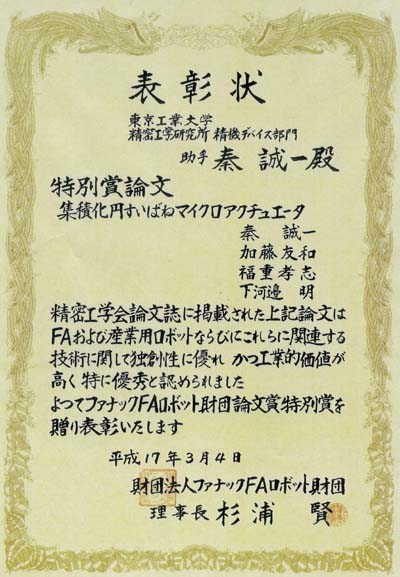 表彰状
東京工業大学
精密工学研究所 精機デバイス部門
助手 秦 誠一殿
特別賞論文
集積化円すいばねマイクロアクチュエータ
秦 誠一
加藤友和
福重孝志
下河邉 明
精密工学会論文誌に掲載された上記論文は
FAおよび産業用ロボットならびにこれらに関連する
技術に関して独創性に優れ かつ工業的価値が
高く特に優秀と認められました
よつてファナックFAロボット財団論文賞特別賞を
贈り表彰いたします
平成17年3月4日
財団法人ファナックFAロボット財団
理事長 杉浦 賢